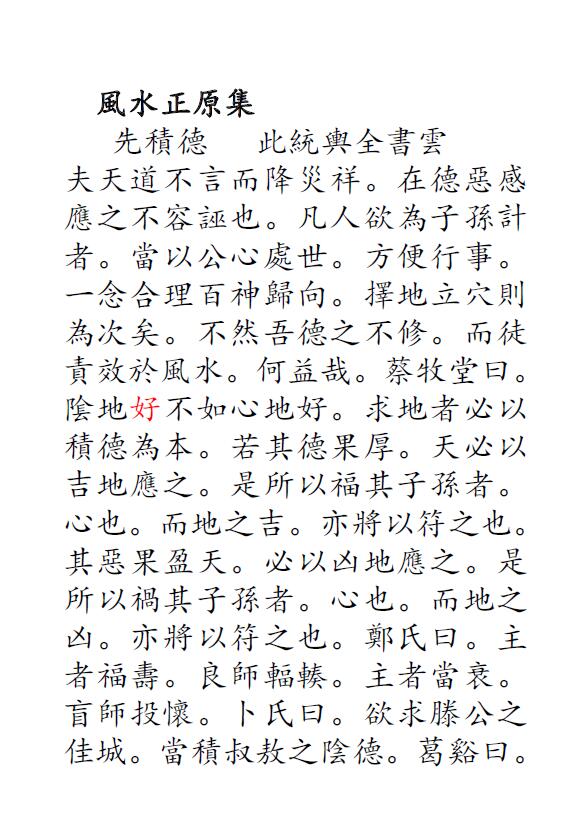 風水正原集
先積德　此統輿全書雲
夫天道不言而降災祥。在德惡感
應之不容誣也。凡人欲為子孫計
者。當以公心處世。方便行事。
一念合理百神歸向。擇地立穴則
為次矣。不然吾德之不修。而徒
責效於風水。何益哉。蔡牧堂曰。
陰地好不如心地好。求地者必以
積德為本。若其德果厚。天必以
吉地應之。是所以福其子孫者。
心也。而地之吉。亦將以符之也。
其惡果盈天。必以凶地應之。是
所以禍其子孫者。心也。而地之
凶。亦將以符之也。鄭氏曰。主
者福壽。良師輻輳。主者當衰。
盲師投懷。卜氏曰。欲求滕公之
佳城。當積叔敖之陰德。葛谿曰。